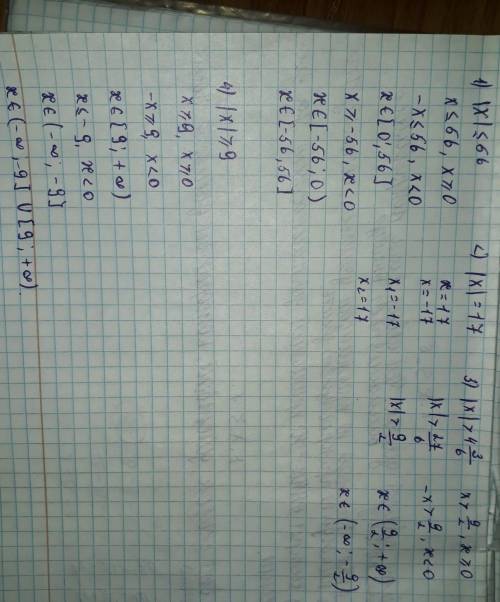 1) |x| ≤ 56
x ≤ 56, x ≥ 0
-x ≤ 56, x < 0
x ∈ [0; 56]
x ≥ -56, x < 0
x ∈ [-56; 0)
x ∈ [-56; 56]
4) |x| ≥ 9
x ≥ 9, x ≥ 0
-x ≥ 9, x < 0
x ∈ [9; +∞)
x ≤ -9, x < 0
x ∈ (-∞; -9]
x ∈ (-∞; -9] ∪ [9; +∞).
2) |x| = 17
x = 17
x = -17
x₁ = -17
x₂ = 17
3) |x| > 4 3/6
|x| > 27/6
|x| > 9/2
x > 9/2, x ≥ 0
-x > 9/2, x < 0
x ∈ (9/2; +∞)
x ∈ (-∞; -9/2)